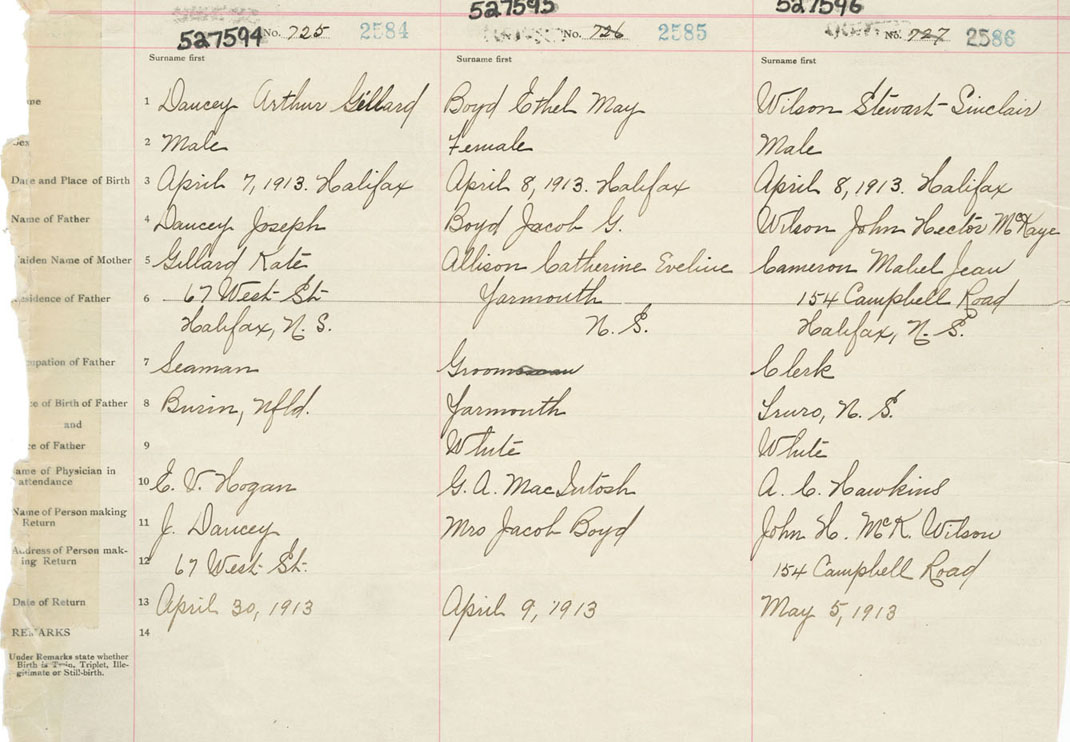 527594 No. 725 2584
527595 No. 726 2585
527596 No. 727 2586
Surname first Surname first Surname first
1 Daucey Arthur Gillard Boyd Ethel May Wilson Stewart Sinclair
2 Male Female Male
Date and Place of Birth 3 April 7, 1913. Halifax April 8, 1913. Halifax April 8, 1913. Halifax
Name of Father 4 Daucey Joseph Boyd Jacob G. Wilson John Hector McKaye
aiden Name of Mother 5 Gillard Kate Allison Catherine Eveline Cameron Mabel Jean
esidence of Father 6 67 West St. Yarmouth 154 Campbell Road
Halifax, N.S. N.S. Halifax, N.S.
cupation of Father 7 Seaman Groom Clerk
ce of Birth of Father 8 Burin, Nfld. Yarmouth Truro, N.S.
and
ce of Father 9 White White
ame of Physician in
attendance 10 E. V. Hogan G. A. MacIntosh A. C. Hawkins
Name of Person making
Return 11 J. Daucey Mrs Jacob Boyd John H. McK. Wilson
Address of Person mak-
ing Return 12 67 West St. 154 Campbell Road
Date of Return 13 April 30, 1913 April 9, 1913 May 5, 1913
REMARKS 14
Under Remarks state whether
Birth is Twin, Triplet, Ille-
gitimate or Still-birth.